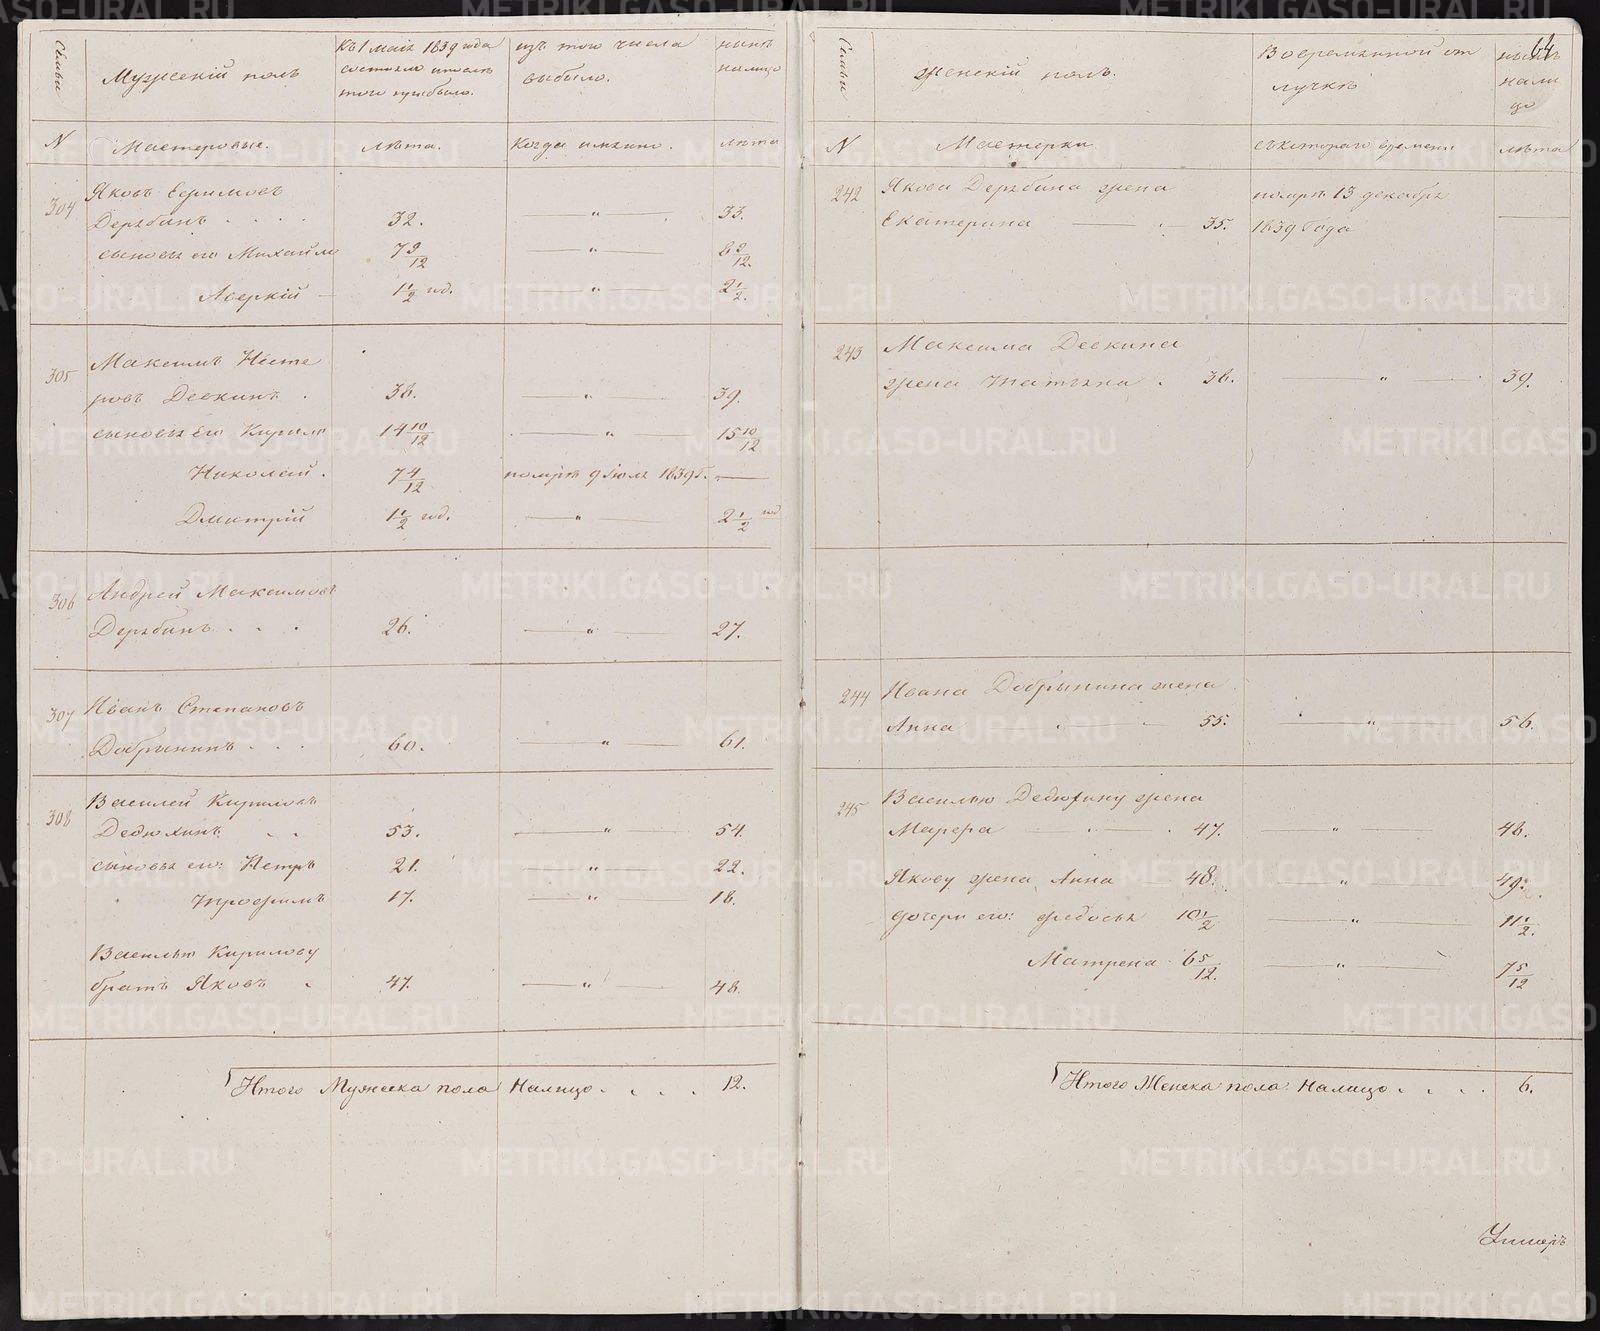 Семьи
Мужескій полъ
Къ 1 маія 1839 года
состояло и послѣ
того прибыло.
изъ того числа
выбыло.
нынѣ
налицо
N
Мастеровые.
лѣта.
Когда именно.
лѣта
304
Яковъ Ефимовъ
Дерябинъ . . . . 32. — " — 33.
сыновья его Михайло 7 9/12 — " — 8 9/12.
Аверкій — 1 1/2 год. — " — 2 1/2.
305
Максимъ Несте
ровъ Деекинъ . 38. — " — 39.
сыновья его Кирило 14 10/12 — " — 15 10/12
Николай . 7 4/12 помре 9 іюля 1839 г. —
Дмитрій 1 1/2 год. — " — 2 1/2 год
306
Андрей Максимовъ
Дерябинъ . . . 26. — " — 27.
307
Иванъ Степановъ
Добрынинъ . . . 60. — " — 61.
308
Василей Кириловъ
Дедюхинъ . . 53. — " — 54.
сыновья его: Петръ 21. — " — 22.
Трофимъ 17. — " — 18.
Василью Кирилову
братъ Яковъ . 47. — " — 48.
Итого Мужеска пола Налицо . . . . 12.
64
Семьи
Женскій полъ.
Во временной от
лучкѣ
нынѣ
нали
цо
N
Мастерки
съ котораго времени
лѣта
242
Якова Дерябина жена
помре 13 декабря
Екатерина — 35. 1839 года —
243
Максима Деекина
жена Татьяна . 38. — " — 39.
244
Ивана Добрынина жена
Анна — 55. — " — 56.
245
Василью Дедюхину жена
Марфа — 47. — " — 48.
Якову жена Анна — 48. — " — 49.
дочери его: Федосья 10 1/2 — " — 11 1/2.
Матрена 6 5/12. — " — 7 5/12
Итого Женска пола Налицо . . . . 6.
METRIKI.GASO-URAL.RU